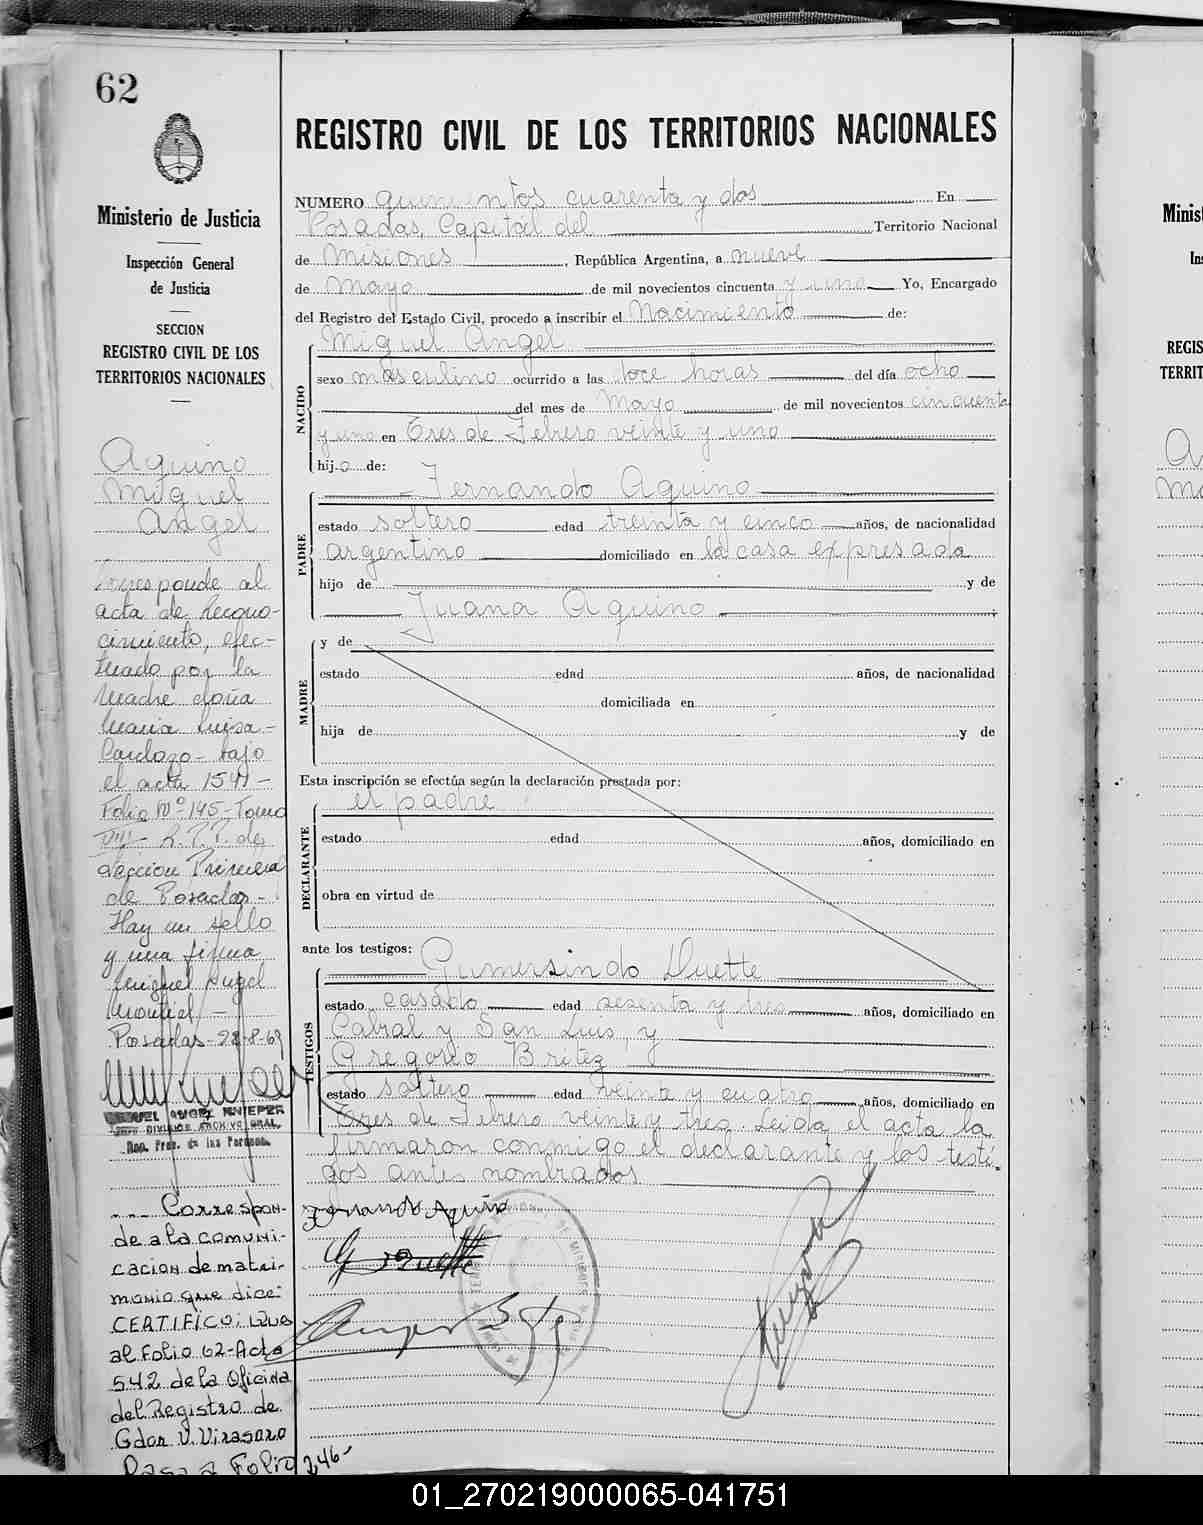 62
Ministerio de Justicia
Inspección General
de Justicia
SECCION
REGISTRO CIVIL DE LOS
TERRITORIOS NACIONALES
Aquino
Miguel
Angel
Corresponde al
acta de Recono-
cimiento, efec-
tuado por la
Madre doña
Maria Luisa-
Cardozo- bajo
el acta 1541-
Folio Nº 145- Tomo
VIII- R.T.T. de
Sección Primera
de Posadas-
Hay un sello
y una firma
Miguel Angel
Montiel-
Posadas- 28-8-69
MIGUEL ANGEL
DIVISION ARCHIVO GRAL.
Reg. Prov. de las Personas.
Correspon-
de a la comuni-
cacion de matri-
monio que dice:
CERTIFICO: que
al Folio 62-Acta
542 de la Oficina
del Registro de
Gdor V. Virasoro
Pasa a Folio 246-
REGISTRO CIVIL DE LOS TERRITORIOS NACIONALES
NUMERO quinientos cuarenta y dos En
Posadas, Capital del Territorio Nacional
de Misiones, República Argentina, a nueve
de Mayo de mil novecientos cincuenta y uno Yo, Encargado
del Registro del Estado Civil, procedo a inscribir el Nacimiento de:
NACIDO
Miguel Angel
sexo masculino ocurrido a las doce horas del día ocho
del mes de Mayo de mil novecientos cincuenta
y uno en Tres de Febrero veinte y uno
hijo de:
PADRE
Fernando Aquino
estado soltero edad treinta y cinco años, de nacionalidad
argentino domiciliado en la casa expresada
hijo de y de
Juana Aquino
MADRE
y de
estado edad años, de nacionalidad
domiciliada en
hija de y de
Esta inscripción se efectúa según la declaración prestada por:
DECLARANTE
el padre
estado edad años, domiciliado en
obra en virtud de
ante los testigos:
TESTIGOS
Gumersindo Duette
estado casado edad sesenta y tres años, domiciliado en
Cabral y San Luis, y
Gregorio Britez
estado soltero edad veinte y cuatro años, domiciliado en
Tres de Febrero veinte y tres Leida el acta la
firmaron conmigo el declarante y los testi-
gos antes nombrados
Fernando Aquino
G Duette
Minis
In
REGIS
TERRIT
01_270219000065-041751